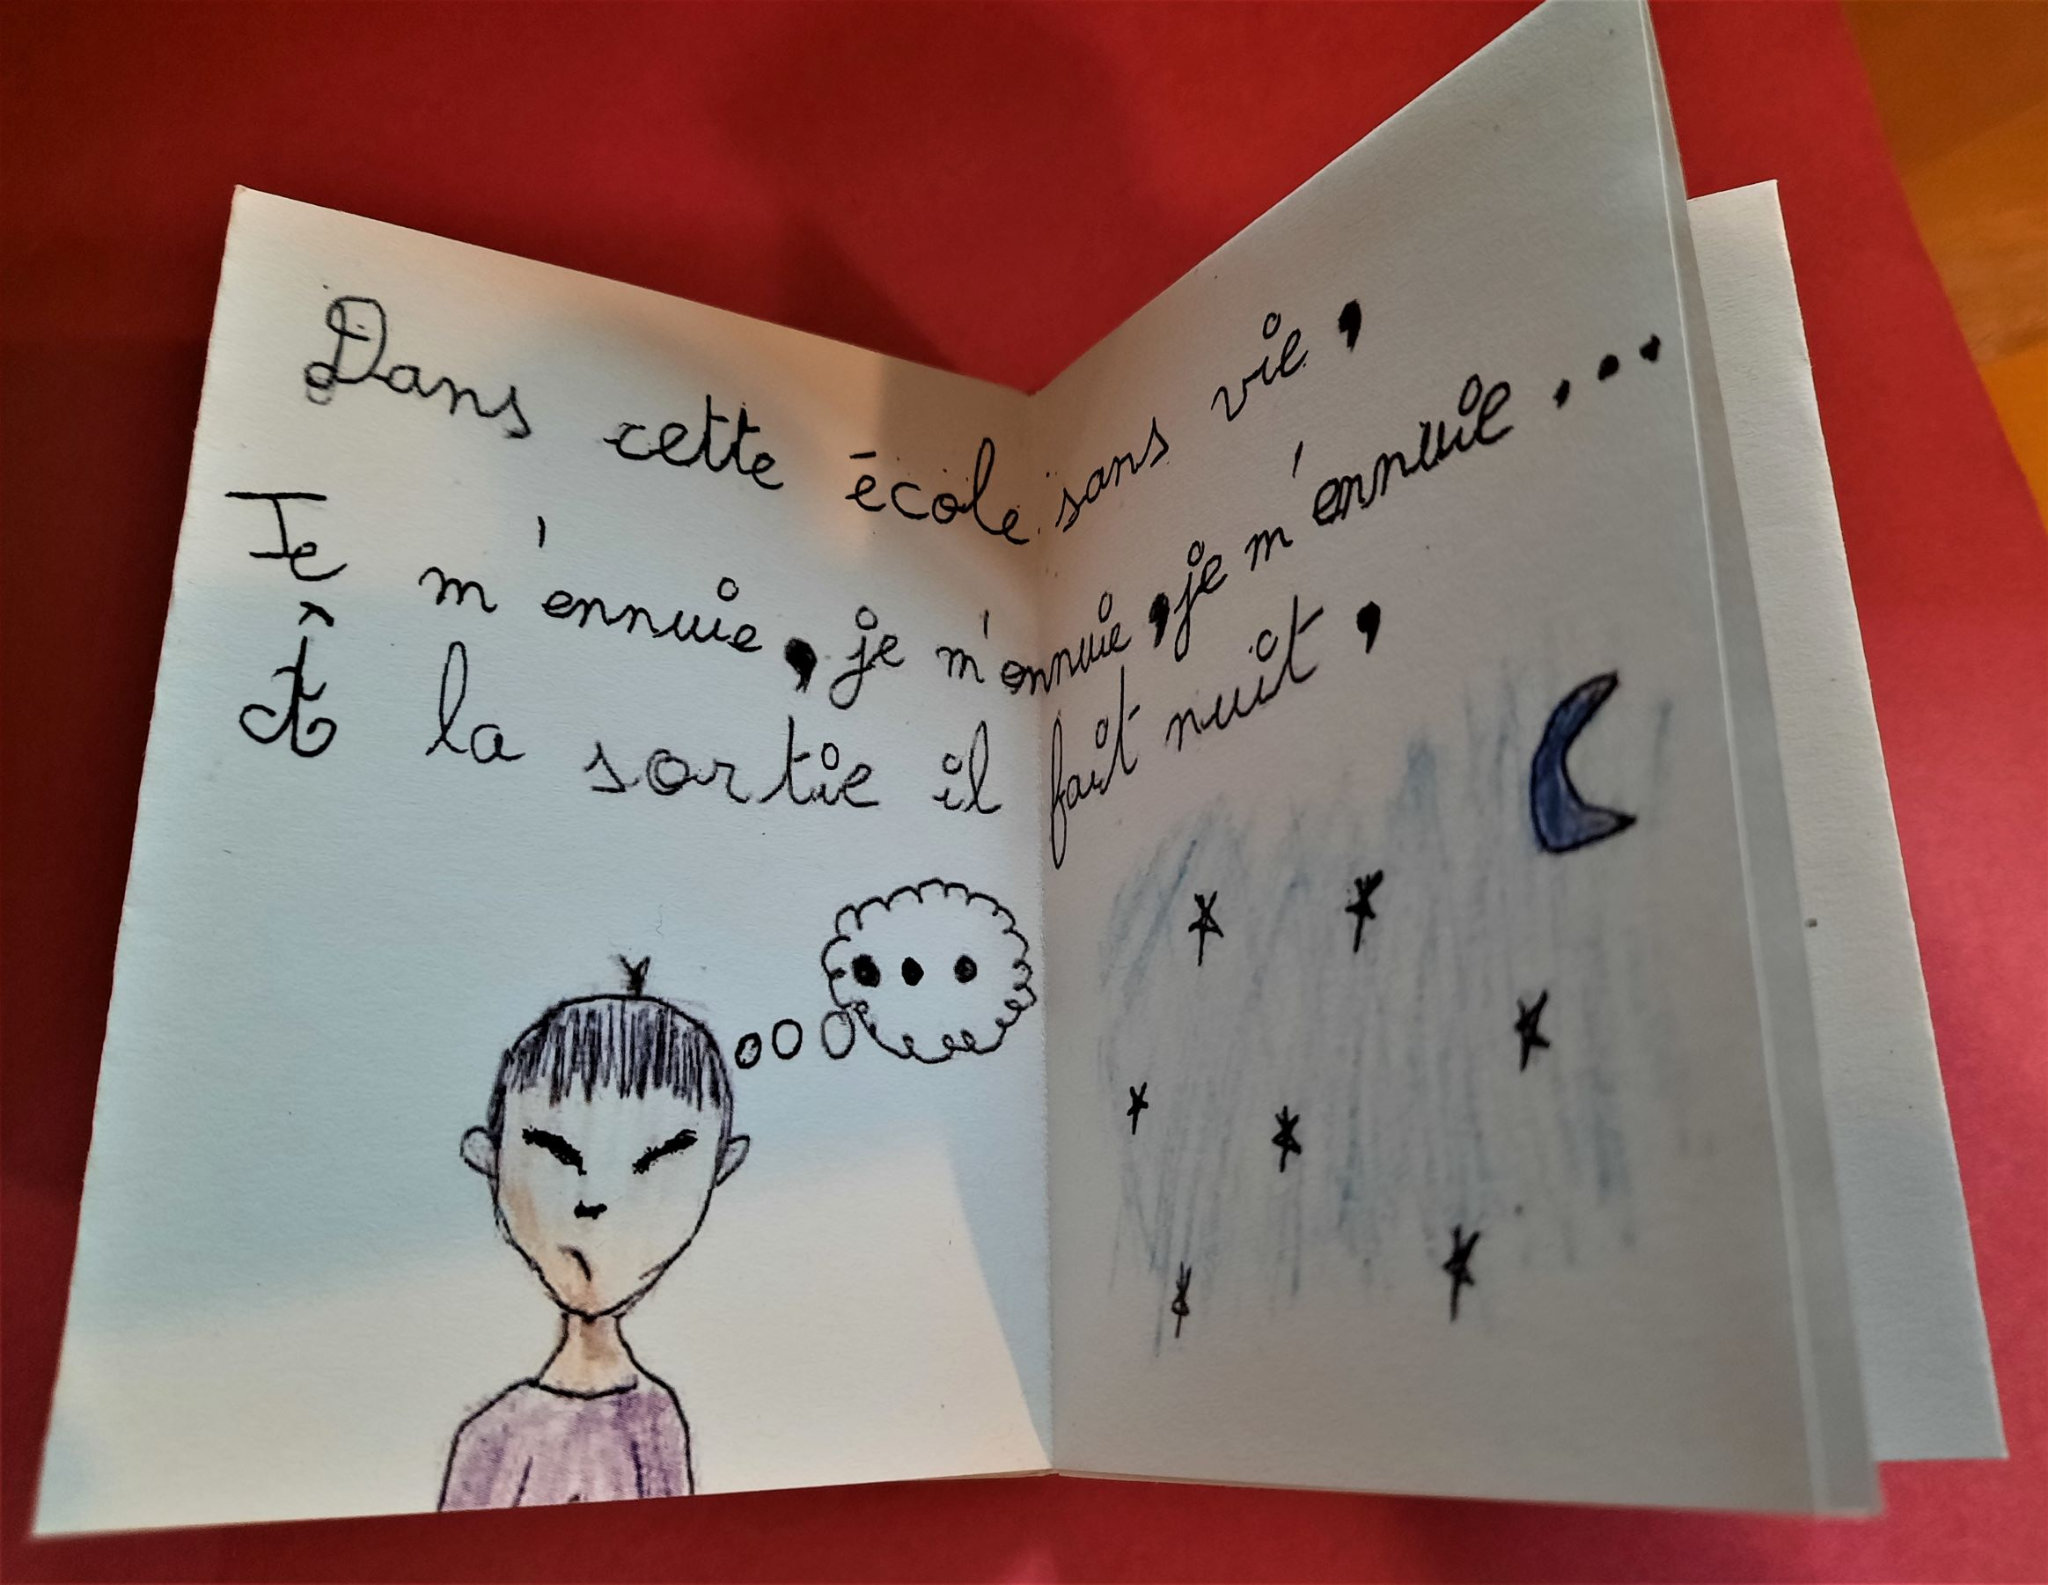 Dans cette école sans vie,
Je m'ennuie, je m'ennuie, je m'ennuie...
À la sortie il fait nuit,
...